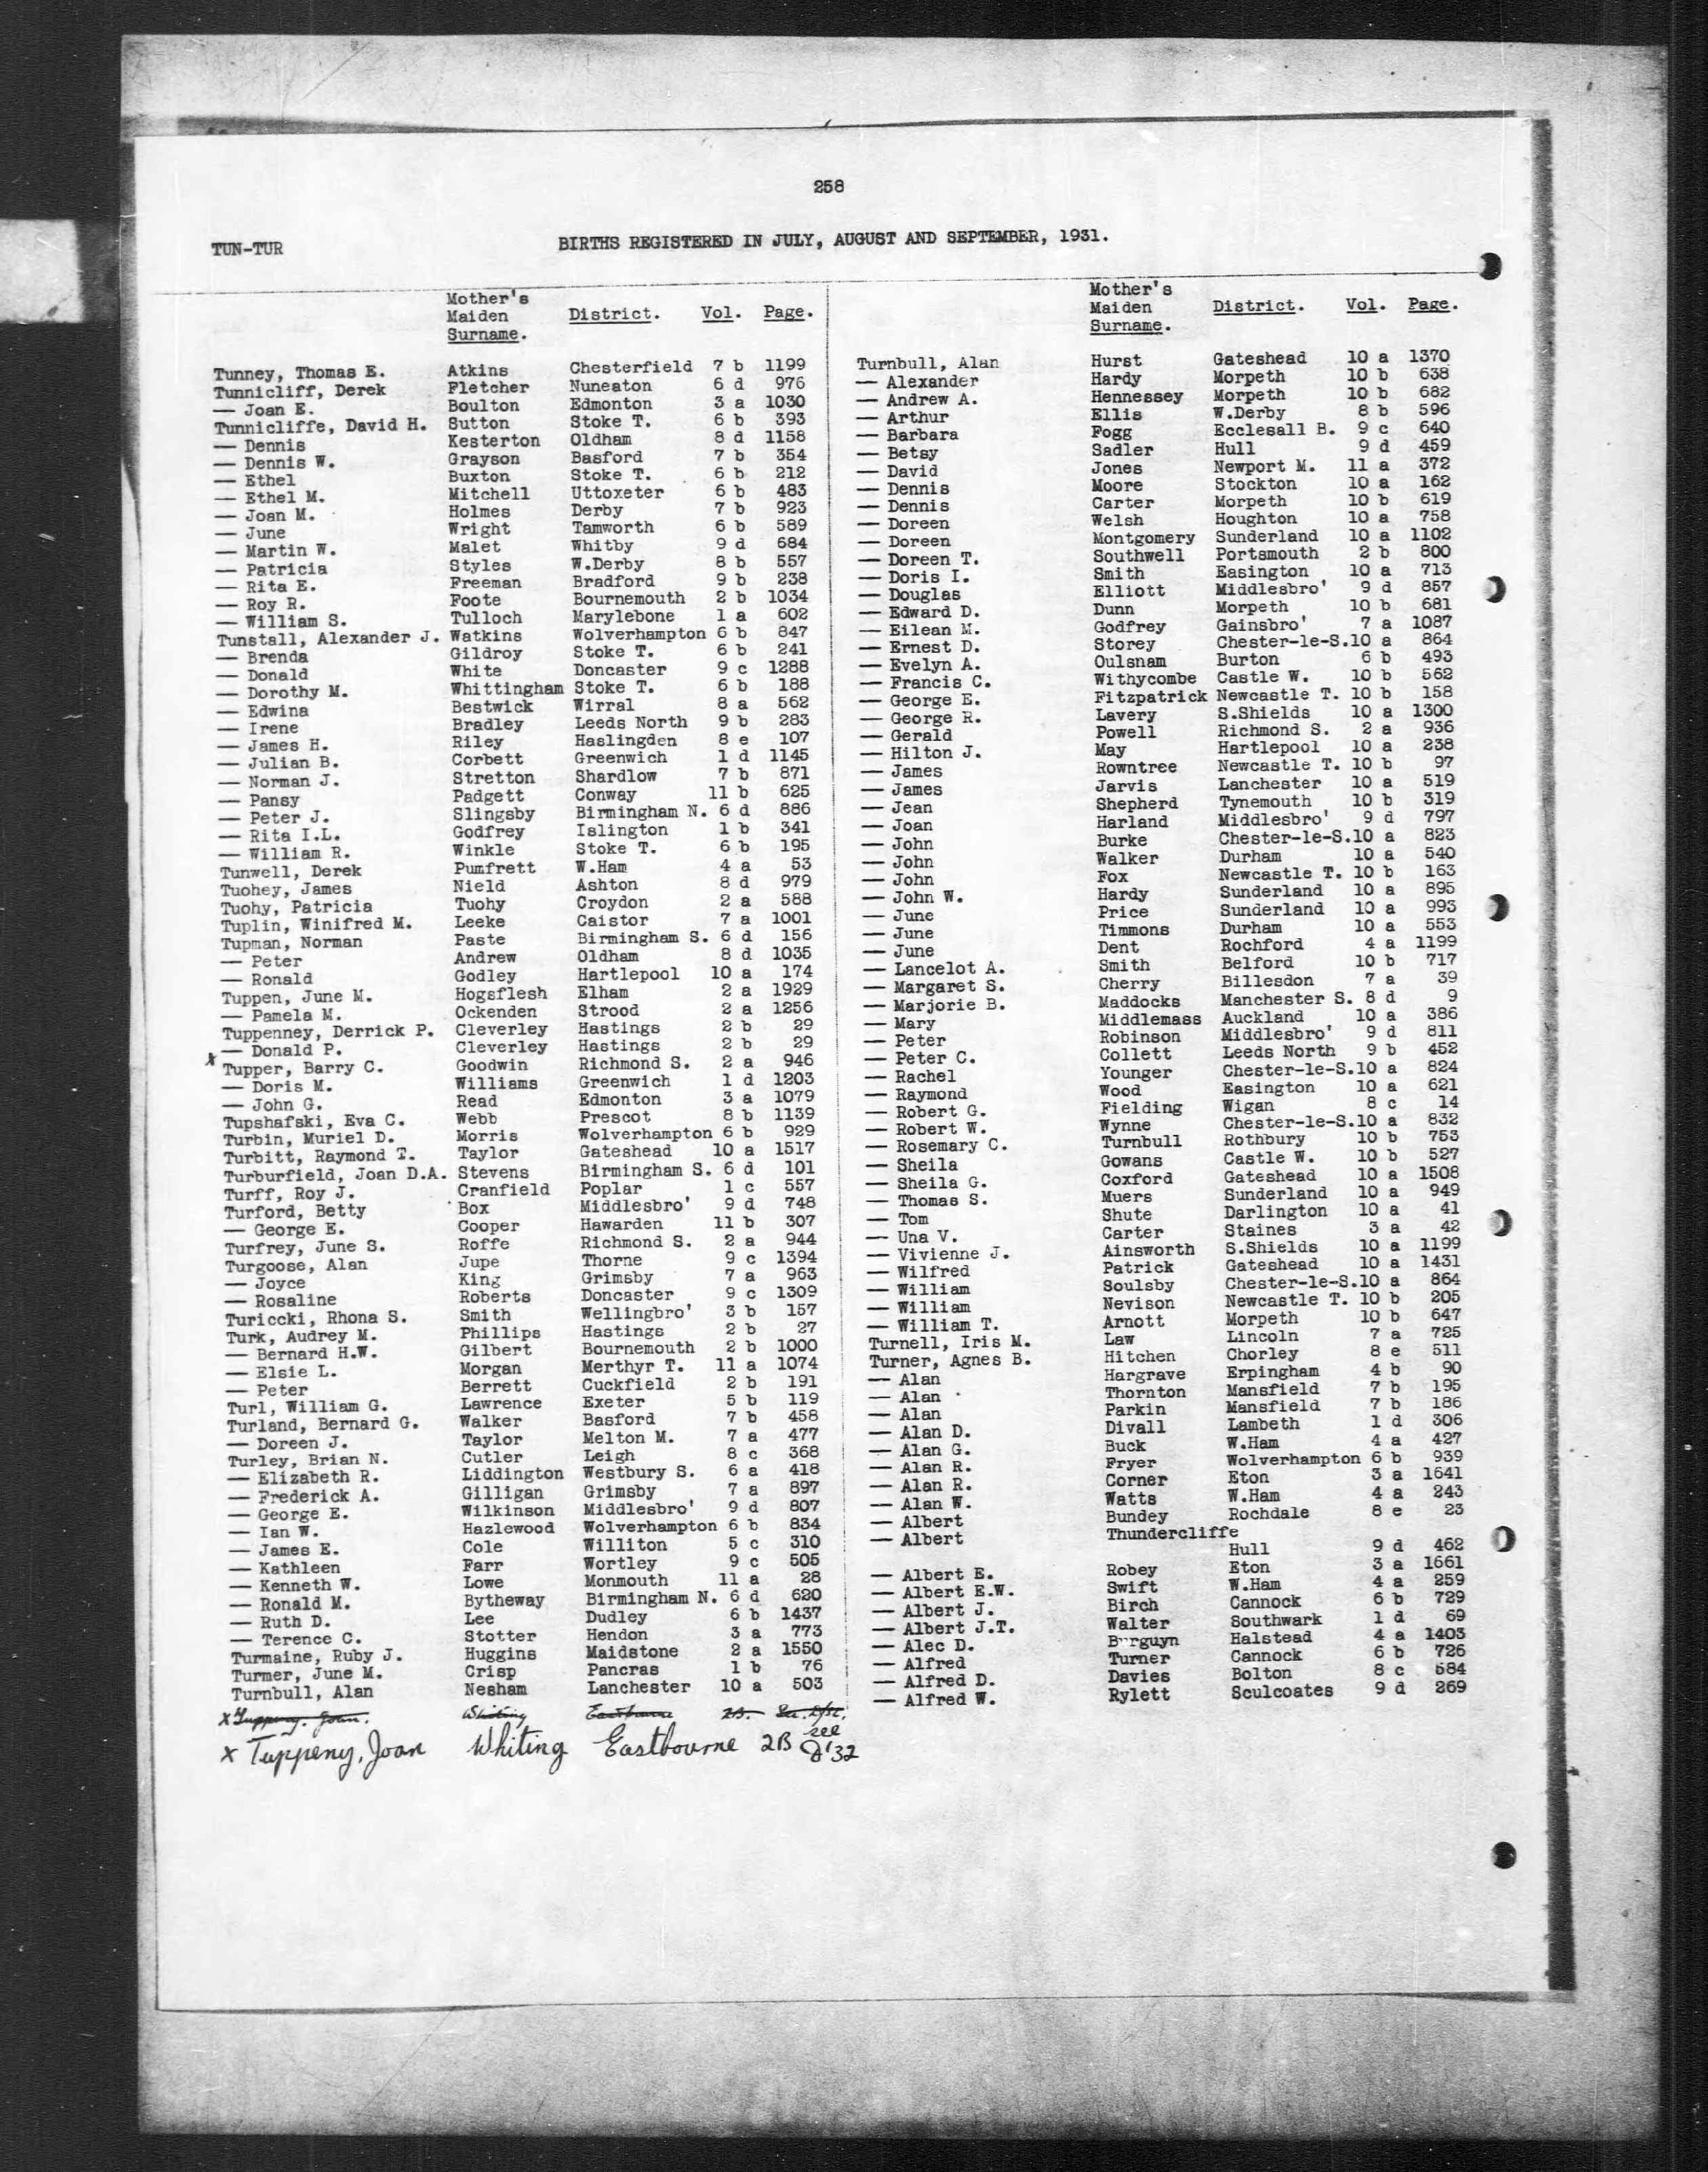 258
TUN-TUR
BIRTHS REGISTERED IN JULY, AUGUST AND SEPTEMBER, 1931.
Mother's
Maiden District. Vol. Page.
Surname.
Tunney, Thomas E. Atkins Chesterfield 7 b 1199
Tunnicliff, Derek Fletcher Nuneaton 6 d 976
— Joan E. Boulton Edmonton 3 a 1030
Tunnicliffe, David H. Sutton Stoke T. 6 b 393
— Dennis Kesterton Oldham 8 d 1158
— Dennis W. Grayson Basford 7 b 354
— Ethel Buxton Stoke T. 6 b 212
— Ethel M. Mitchell Uttoxeter 6 b 483
— Joan M. Holmes Derby 7 b 923
— June Wright Tamworth 6 b 589
— Martin W. Malet Whitby 9 d 684
— Patricia Styles W.Derby 8 b 557
— Rita E. Freeman Bradford 9 b 238
— Roy R. Foote Bournemouth 2 b 1034
— William S. Tulloch Marylebone 1 a 602
Tunstall, Alexander J. Watkins Wolverhampton 6 b 847
— Brenda Gildroy Stoke T. 6 b 241
— Donald White Doncaster 9 c 1288
— Dorothy M. Whittingham Stoke T. 6 b 188
— Edwina Bestwick Wirral 8 a 562
— Irene Bradley Leeds North 9 b 283
— James H. Riley Haslingden 8 e 107
— Julian B. Corbett Greenwich 1 d 1145
— Norman J. Stretton Shardlow 7 b 871
— Pansy Padgett Conway 11 b 625
— Peter J. Slingsby Birmingham N. 6 d 886
— Rita I.L. Godfrey Islington 1 b 341
— William R. Winkle Stoke T. 6 b 195
Tunwell, Derek Pumfrett W.Ham 4 a 53
Tuohey, James Nield Ashton 8 d 979
Tuohy, Patricia Tuohy Croydon 2 a 588
Tuplin, Winifred M. Leeke Caistor 7 a 1001
Tupman, Norman Paste Birmingham S. 6 d 156
— Peter Andrew Oldham 8 d 1035
— Ronald Godley Hartlepool 10 a 174
Tuppen, June M. Hogsflesh Elham 2 a 1929
— Pamela M. Ockenden Strood 2 a 1256
Tuppenney, Derrick P. Cleverley Hastings 2 b 29
— Donald P. Cleverley Hastings 2 b 29
x Tupper, Barry C. Goodwin Richmond S. 2 a 946
— Doris M. Williams Greenwich 1 d 1203
— John G. Read Edmonton 3 a 1079
Tupshafski, Eva C. Webb Prescot 8 b 1139
Turbin, Muriel D. Morris Wolverhampton 6 b 929
Turbitt, Raymond T. Taylor Gateshead 10 a 1517
Turburfield, Joan D.A. Stevens Birmingham S. 6 d 101
Turff, Roy J. Cranfield Poplar 1 c 557
Turford, Betty Box Middlesbro' 9 d 748
— George E. Cooper Hawarden 11 b 307
Turfrey, June S. Roffe Richmond S. 2 a 944
Turgoose, Alan Jupe Thorne 9 c 1394
— Joyce King Grimsby 7 a 963
— Rosaline Roberts Doncaster 9 c 1309
Turiccki, Rhona S. Smith Wellingbro' 3 b 157
Turk, Audrey M. Phillips Hastings 2 b 27
— Bernard H.W. Gilbert Bournemouth 2 b 1000
— Elsie L. Morgan Merthyr T. 11 a 1074
— Peter Berrett Cuckfield 2 b 191
Turl, William G. Lawrence Exeter 5 b 119
Turland, Bernard G. Walker Basford 7 b 458
— Doreen J. Taylor Melton M. 7 a 477
Turley, Brian N. Cutler Leigh 8 c 368
— Elizabeth R. Liddington Westbury S. 6 a 418
— Frederick A. Gilligan Grimsby 7 a 897
— George E. Wilkinson Middlesbro' 9 d 807
— Ian W. Hazlewood Wolverhampton 6 b 834
— James E. Cole Williton 5 c 310
— Kathleen Farr Wortley 9 c 505
— Kenneth W. Lowe Monmouth 11 a 28
— Ronald M. Bytheway Birmingham N. 6 d 620
— Ruth D. Lee Dudley 6 b 1437
— Terence C. Stotter Hendon 3 a 773
Turmaine, Ruby J. Huggins Maidstone 2 a 1550
Turmer, June M. Crisp Pancras 1 b 76
Turnbull, Alan Nesham Lanchester 10 a 503
x Tuppeny, Joan. Whiting Eastbourne 2B.
x Tuppeny, Joan Whiting Eastbourne 2B see J'32
Mother's
Maiden District. Vol. Page.
Surname.
Turnbull, Alan Hurst Gateshead 10 a 1370
— Alexander Hardy Morpeth 10 b 638
— Andrew A. Hennessey Morpeth 10 b 682
— Arthur Ellis W.Derby 8 b 596
— Barbara Fogg Ecclesall B. 9 c 640
— Betsy Sadler Hull 9 d 459
— David Jones Newport M. 11 a 372
— Dennis Moore Stockton 10 a 162
— Dennis Carter Morpeth 10 b 619
— Doreen Welsh Houghton 10 a 758
— Doreen Montgomery Sunderland 10 a 1102
— Doreen T. Southwell Portsmouth 2 b 800
— Doris I. Smith Easington 10 a 713
— Douglas Elliott Middlesbro' 9 d 857
— Edward D. Dunn Morpeth 10 b 681
— Eilean M. Godfrey Gainsbro' 7 a 1087
— Ernest D. Storey Chester-le-S.10 a 864
— Evelyn A. Oulsnam Burton 6 b 493
— Francis C. Withycombe Castle W. 10 b 562
— George E. Fitzpatrick Newcastle T. 10 b 158
— George R. Lavery S.Shields 10 a 1300
— Gerald Powell Richmond S. 2 a 936
— Hilton J. May Hartlepool 10 a 238
— James Rowntree Newcastle T. 10 b 97
— James Jarvis Lanchester 10 a 519
— Jean Shepherd Tynemouth 10 b 319
— Joan Harland Middlesbro' 9 d 797
— John Burke Chester-le-S.10 a 823
— John Walker Durham 10 a 540
— John Fox Newcastle T. 10 b 163
— John W. Hardy Sunderland 10 a 895
— June Price Sunderland 10 a 993
— June Timmons Durham 10 a 553
— June Dent Rochford 4 a 1199
— Lancelot A. Smith Belford 10 b 717
— Margaret S. Cherry Billesdon 7 a 39
— Marjorie B. Maddocks Manchester S. 8 d 9
— Mary Middlemass Auckland 10 a 386
— Peter Robinson Middlesbro' 9 d 811
— Peter C. Collett Leeds North 9 b 452
— Rachel Younger Chester-le-S.10 a 824
— Raymond Wood Easington 10 a 621
— Robert G. Fielding Wigan 8 c 14
— Robert W. Wynne Chester-le-S.10 a 832
— Rosemary C. Turnbull Rothbury 10 b 753
— Sheila Gowans Castle W. 10 b 527
— Sheila G. Coxford Gateshead 10 a 1508
— Thomas S. Muers Sunderland 10 a 949
— Tom Shute Darlington 10 a 41
— Una V. Carter Staines 3 a 42
— Vivienne J. Ainsworth S.Shields 10 a 1199
— Wilfred Patrick Gateshead 10 a 1431
— William Soulsby Chester-le-S.10 a 864
— William Nevison Newcastle T. 10 b 205
— William T. Arnott Morpeth 10 b 647
Turnell, Iris M. Law Lincoln 7 a 725
Turner, Agnes B. Hitchen Chorley 8 e 511
— Alan Hargrave Erpingham 4 b 90
— Alan Thornton Mansfield 7 b 195
— Alan Parkin Mansfield 7 b 186
— Alan D. Divall Lambeth 1 d 306
— Alan G. Buck W.Ham 4 a 427
— Alan R. Fryer Wolverhampton 6 b 939
— Alan R. Corner Eton 3 a 1641
— Alan W. Watts W.Ham 4 a 243
— Albert Bundey Rochdale 8 e 23
— Albert Thundercliffe
Hull 9 d 462
— Albert E. Robey Eton 3 a 1661
— Albert E.W. Swift W.Ham 4 a 259
— Albert J. Birch Cannock 6 b 729
— Albert J.T. Walter Southwark 1 d 69
— Alec D. Halstead 4 a 1403
— Alfred Turner Cannock 6 b 726
— Alfred D. Davies Bolton 8 c 584
— Alfred W. Rylett Sculcoates 9 d 269